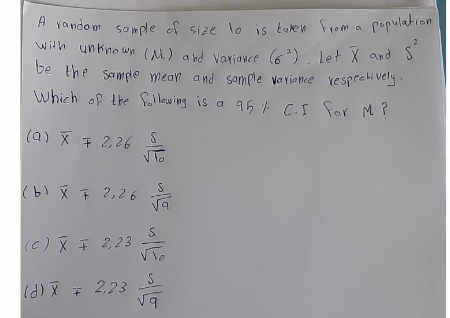 A random sample of size 10 is taken from a population
with unknown (M) and variance (6²). Let X̄ and S²
be the sample mean and sample variance respectively.
Which of the following is a 95% C.I for M?
(a) X̄ ∓ 2,26 S/√10
(b) X̄ ∓ 2,26 S/√9
(c) X̄ ∓ 2,23 S/√10
(d) X̄ ∓ 2,23 S/√9